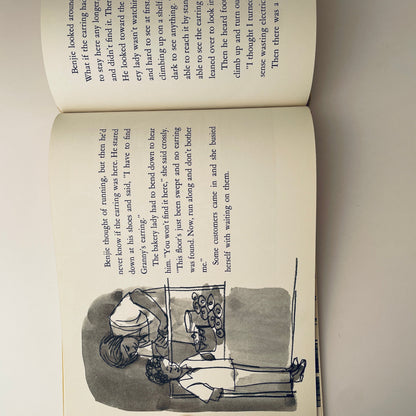 Benjie thought of running, but then he'd
never know if the earring was here. He stared
down at his shoes and said, "I have to find
Granny's earring."
The bakery lady had to bend down to hear
him. "You won't find it here," she said crossly.
"This floor's just been swept and no earring
was found. Now, run along and don't bother
me."
Some customers came in and she busied
herself with waiting on them.
Benjie looked around
What if the earring had
to stay here any longer,
and didn't find it. Then
He looked toward the
ery lady wasn't watchin
and hard to see at first.
climbing up on a shelf
dark to see anything.
able to reach it by stan
able to see the earring
leaned over to look in
Then he heard foo
climb up and run ou
"I thought I turned
sense wasting electric
Then there was a